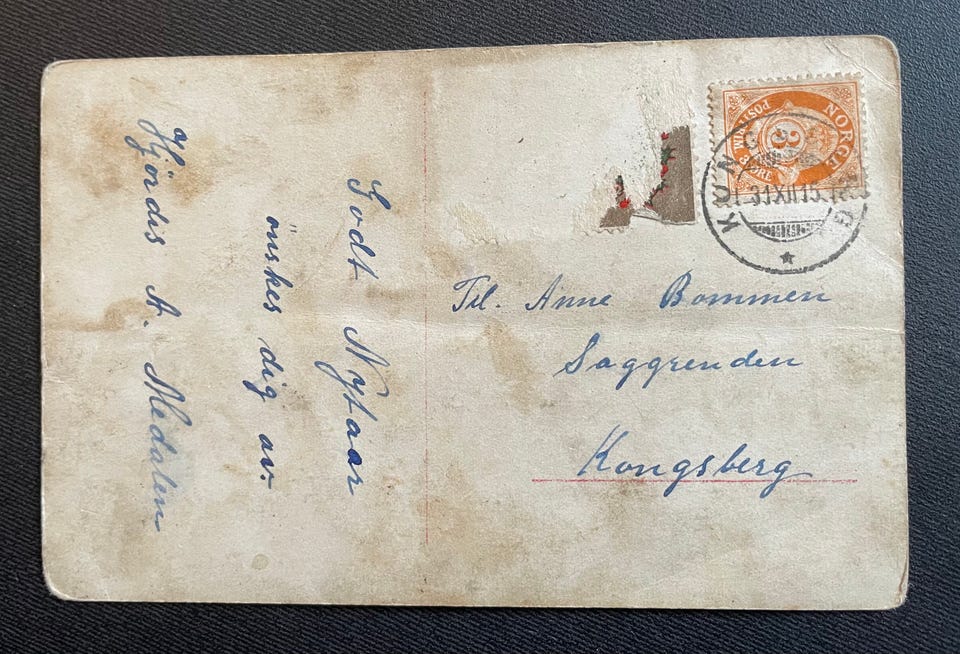 Godt Nytaar
önskes dig av.
Hjördis A. Medalen
Til. Anne Bommen
Saggrenden
Kongsberg
NORGE
POSTFRIM
3
3 ØRE
KONG
31 XII 15